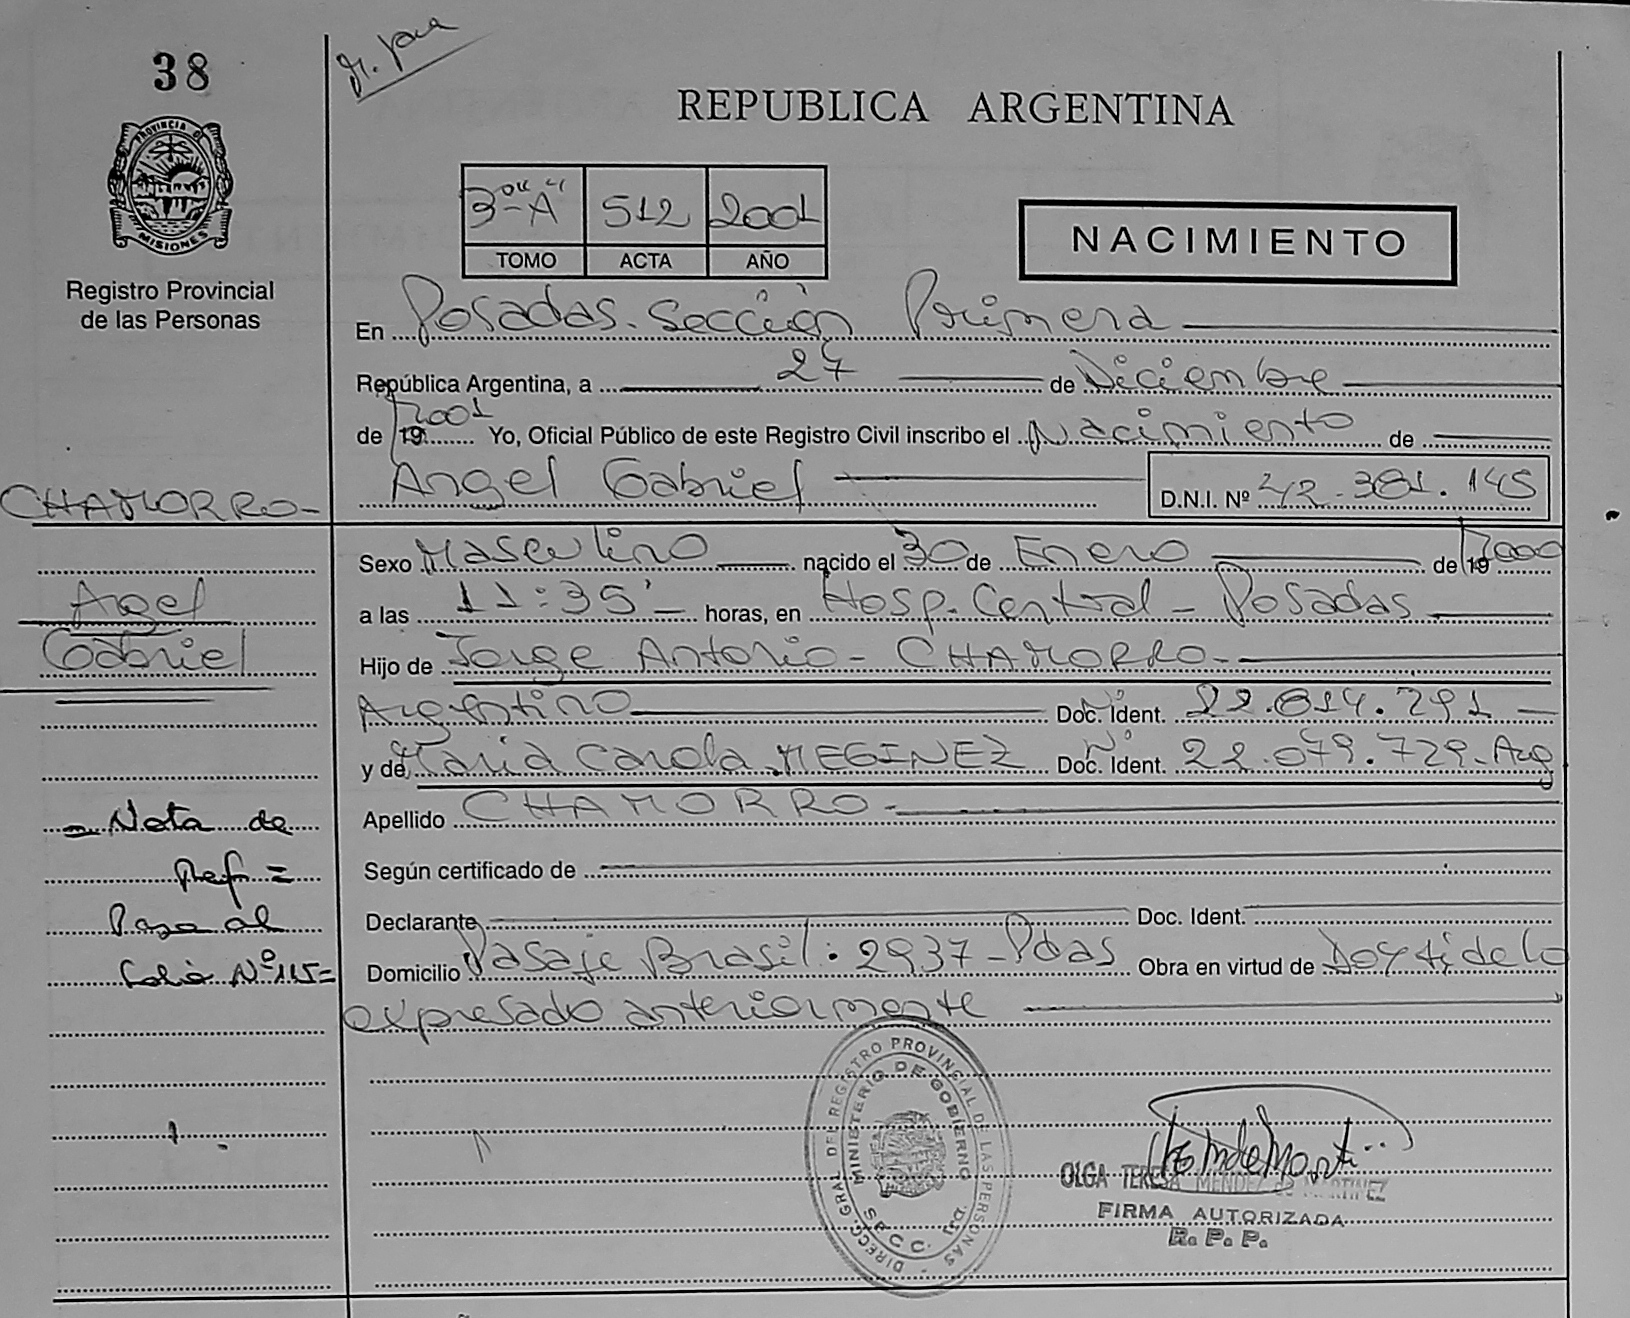 38
REPUBLICA ARGENTINA
PROVINCIA DE
MISIONES
Registro Provincial
de las Personas
3º "A" 512 2001
TOMO ACTA AÑO
NACIMIENTO
En Posadas. Sección Primera
República Argentina, a 27 de Diciembre
de 19 2001 Yo, Oficial Público de este Registro Civil inscribo el Nacimiento de
Angel Gabriel D.N.I. Nº 42.381.145
CHAMORRO-
Angel
Gabriel
Sexo Masculino nacido el 30 de Enero de 19 2000
a las 11:35' horas, en Hosp. Central - Posadas
Hijo de Jorge Antonio - CHAMORRO-
Argentino Doc. Ident. Nº 22.814.291
y de Maria Carola MEGINEZ Doc. Ident. Nº 22.079.729-Arg
Apellido CHAMORRO-
Según certificado de
Declarante Doc. Ident.
Domicilio Pasaje Brasil: 2937-Pdas Obra en virtud de Doy fi de lo
expresado anteriormente
- Nota de
Ref =
Pasa al
Folio Nº 115=
DIRECC. GRAL DEL REGISTRO PROVINCIAL DE LAS PERSONAS
MINISTERIO DE GOBIERNO
SECC.
OLGA TERESA MENDEZ de MARTINEZ
FIRMA AUTORIZADA
R. P. P.